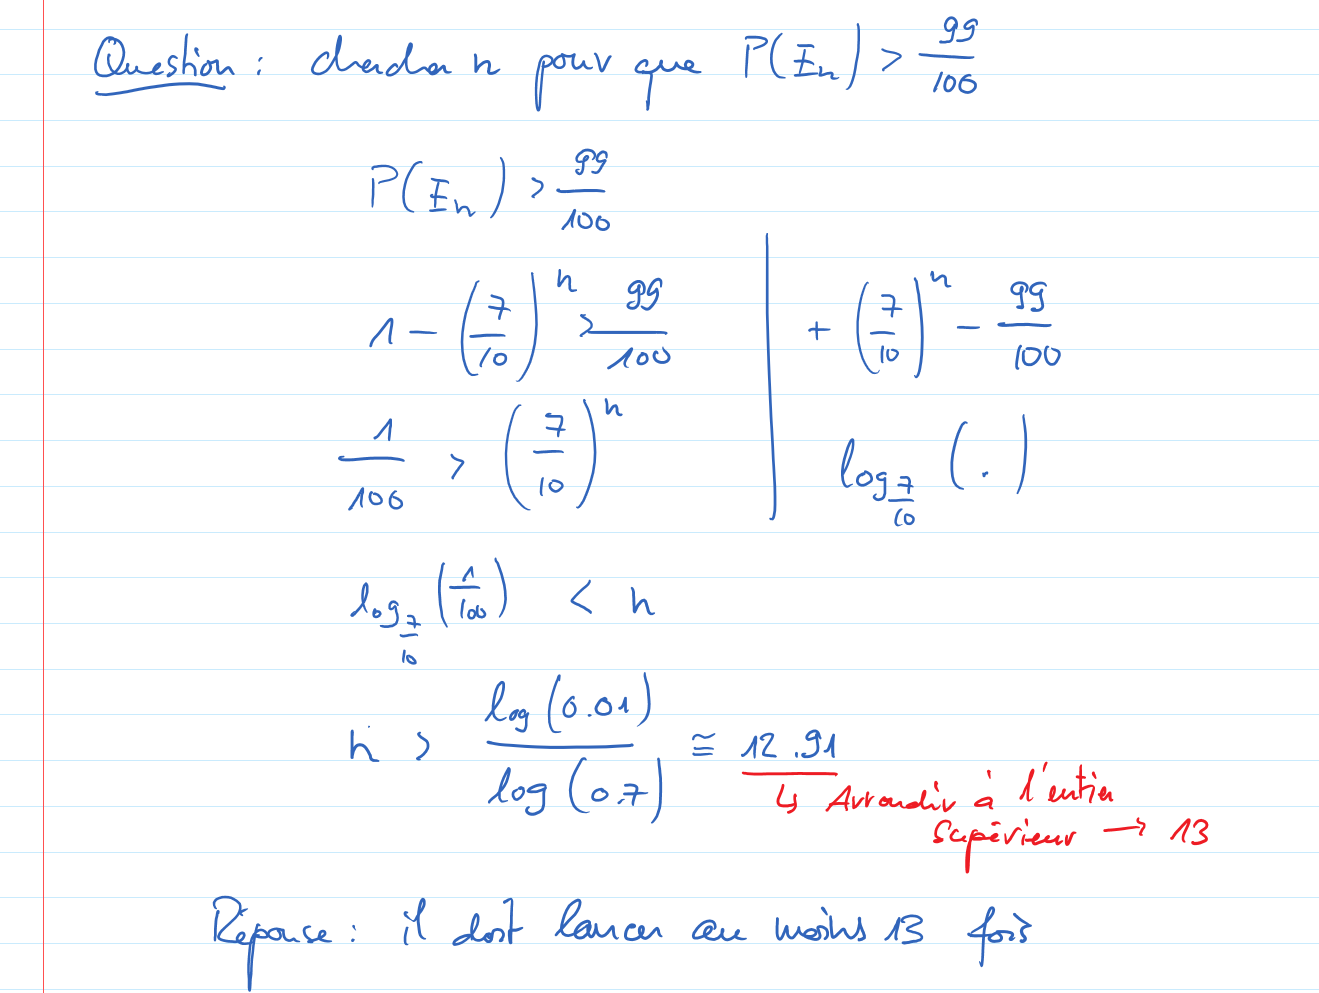 Question : chercher n pour que P(En) > 99/100
P(En) > 99/100
1 - (7/10)^n > 99/100 | + (7/10)^n - 99/100
1/100 > (7/10)^n | log_7/10 (.)
log_7/10 (1/100) < n
n > log(0.01)/log(0.7) ≅ 12.91
↳ Arrondir à l'entier
supérieur → 13
Réponse : il doit lancer au moins 13 fois